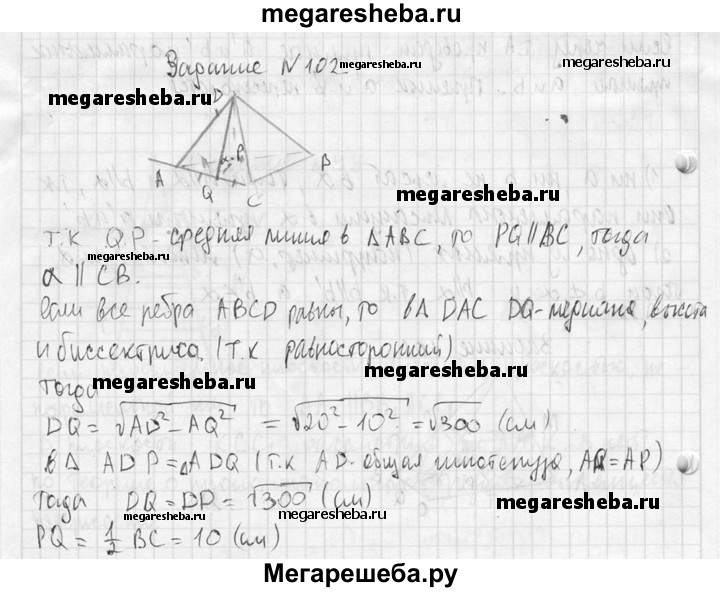 megaresheba.ru
Задание N 102 megaresheba.ru
megaresheba.ru
D
A
Q
P
C
B
α
megaresheba.ru
т.к QP - средняя линия в ΔABC, то PQ || BC, тогда
megaresheba.ru
α || CB.
Если все ребра ABCD равны, то в Δ DAC DQ - медиана, высота
и биссектриса. (т.к равносторонний)
megaresheba.ru
Тогда megaresheba.ru
DQ = √AD² - AQ² = √20² - 10² = √300 (см)
в Δ ADP = ΔADQ (т.к AD - общая гипотенуза, AQ = AP)
тогда DQ = DP = √300 (см) megaresheba.ru
megaresheba.ru megaresheba.ru
PQ = 1/2 BC = 10 (см)
Мегарешеба.ру